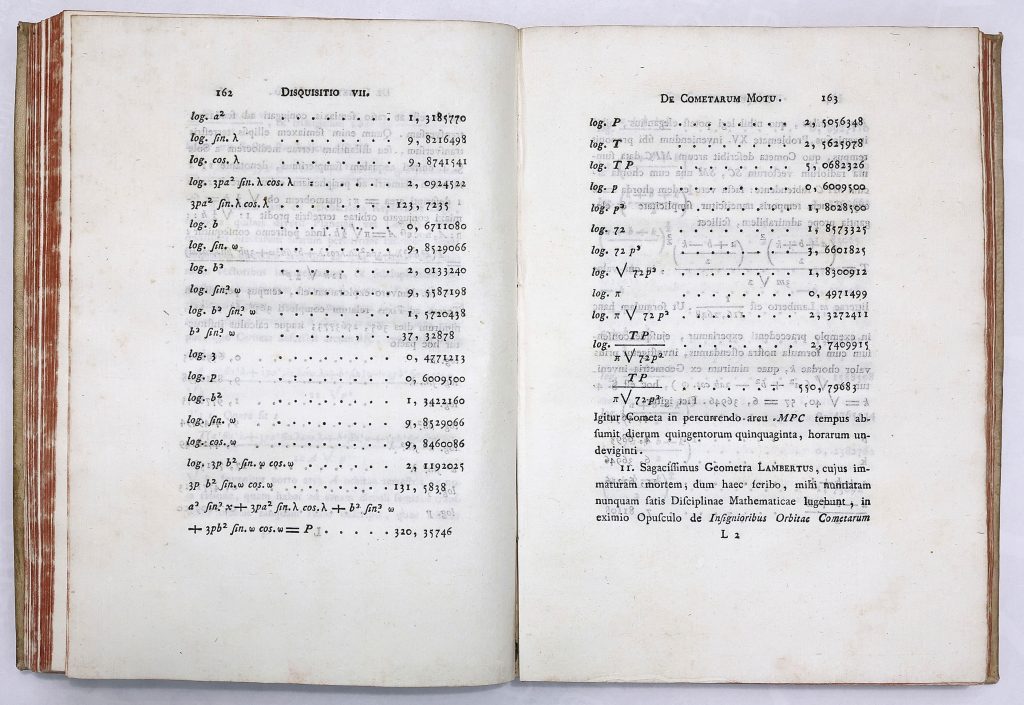 162 Disquisitio VII.
log. a² . . . . . . . . . 1, 3185770
log. ſin. λ . . . . . . . . 9, 8216498
log. cos. λ . . . . . . . . 9, 8741541
log. 3pa² ſin. λ cos. λ . . . . . . 2, 0924522
3pa² ſin. λ cos. λ . . . . . . 123, 7235
log. b . . . . . . . . . 0, 6711080
log. ſin. ω . . . . . . . . 9, 8529066
log. b³ . . . . . . . . . 2, 0133240
log. ſin.³ ω . . . . . . . . 9, 5587198
log. b³ ſin.³ ω . . . . . . . 1, 5720438
b³ ſin.³ ω . . . . . . . 37, 32878
log. 3 . . . . . . . . . 0, 4771213
log. p . . . . . . . . . 0, 6009500
log. b² . . . . . . . . . 1, 3422160
log. ſin. ω . . . . . . . . 9, 8529066
log. cos. ω . . . . . . . . 9, 8460086
log. 3p b² ſin. ω cos. ω . . . . . . 2, 1192025
3p b² ſin. ω cos. ω . . . . . . 131, 5838
a³ ſin.³ x + 3pa² ſin. λ cos. λ + b³ ſin.³ ω
+ 3pb² ſin. ω cos. ω = P . . . . . 320, 35746
De Cometarum Motu. 163
log. P . . . . . . . . 2, 5056348
log. T . . . . . . . . 2, 5625978
log. T P . . . . . . . . 5, 0682326
log. p . . . . . . . . 0, 6009500
log. p³ . . . . . . . . 1, 8028500
log. 72 . . . . . . . . 1, 8573325
log. 72 p³ . . . . . . . . 3, 6601825
log. √ 72p³ . . . . . . . . 1, 8300912
log. π . . . . . . . . 0, 4971499
log. π √ 72 p³ . . . . . . . 2, 3272411
T P
log. . . . . . . . . 2, 7409915
π√ 72p³
T P
. . . . . . . . 550, 79683
π√ 72p³
Igitur Cometa in percurrendo arcu MPC tempus ab-
ſumit dierum quingentorum quinquaginta, horarum un-
deviginti.
11. Sagaciſſimus Geometra Lambertus, cujus im-
maturam mortem, dum haec ſcribo, mihi nuntiatam
nunquam ſatis Diſciplinae Mathematicae lugebunt, in
eximio Opuſculo de Inſignioribus Orbitae Cometarum
L 2